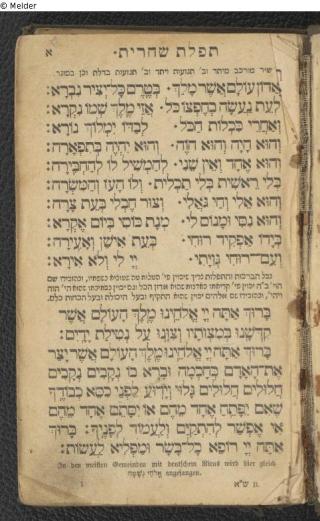 © Melder
תפלת שחרית. א
שיר מורכב מיתד וב׳ תנועות ויתד וב׳ תנועות בדלת וכן בסוגר
אֲדוֹן עוֹלָם אֲשֶׁר מָלַךְ. בְּטֶרֶם כָּל־יְצִיר נִבְרָא:
לְעֵת נַעֲשָׂה בְחֶפְצוֹ כֹּל. אֲזַי מֶלֶךְ שְׁמוֹ נִקְרָא:
וְאַחֲרֵי כִּכְלוֹת הַכֹּל. לְבַדּוֹ יִמְלוֹךְ נוֹרָא:
וְהוּא הָיָה וְהוּא הֹוֶה. וְהוּא יִהְיֶה בְּתִפְאָרָה:
וְהוּא אֶחָד וְאֵין שֵׁנִי. לְהַמְשִׁיל לוֹ לְהַחְבִּירָה:
בְּלִי רֵאשִׁית בְּלִי תַכְלִית. וְלוֹ הָעֹז וְהַמִּשְׂרָה:
וְהוּא אֵלִי וְחַי גֹּאֲלִי. וְצוּר חֶבְלִי בְּעֵת צָרָה:
וְהוּא נִסִּי וּמָנוֹס לִי. מְנָת כּוֹסִי בְּיוֹם אֶקְרָא:
בְּיָדוֹ אַפְקִיד רוּחִי. בְּעֵת אִישַׁן וְאָעִירָה:
וְעִם־רוּחִי גְּוִיָּתִי. יְיָ לִי וְלֹא אִירָא:
בָּרוּךְ אַתָּה יְיָ אֱלֹהֵינוּ מֶלֶךְ הָעוֹלָם אֲשֶׁר
קִדְּשָׁנוּ בְּמִצְוֹתָיו וְצִוָּנוּ עַל נְטִילַת יָדָיִם:
בָּרוּךְ אַתָּה יְיָ אֱלֹהֵינוּ מֶלֶךְ הָעוֹלָם אֲשֶׁר יָצַר
אֶת־הָאָדָם בְּחָכְמָה וּבָרָא בוֹ נְקָבִים נְקָבִים
חֲלוּלִים חֲלוּלִים גָּלוּי וְיָדוּעַ לִפְנֵי כִסֵּא כְבוֹדֶךָ
שֶׁאִם יִפָּתֵחַ אֶחָד מֵהֶם אוֹ יִסָּתֵם אֶחָד מֵהֶם
אִי אֶפְשַׁר לְהִתְקַיֵּם וְלַעֲמוֹד לְפָנֶיךָ: בָּרוּךְ
אַתָּה יְיָ רוֹפֵא כָל־בָּשָׂר וּמַפְלִיא לַעֲשׂוֹת:
In den meisten Gemeinden mit deutschem Ritus wird hier gleich
אֱלֹהַי נְשָׁמָה angefangen.